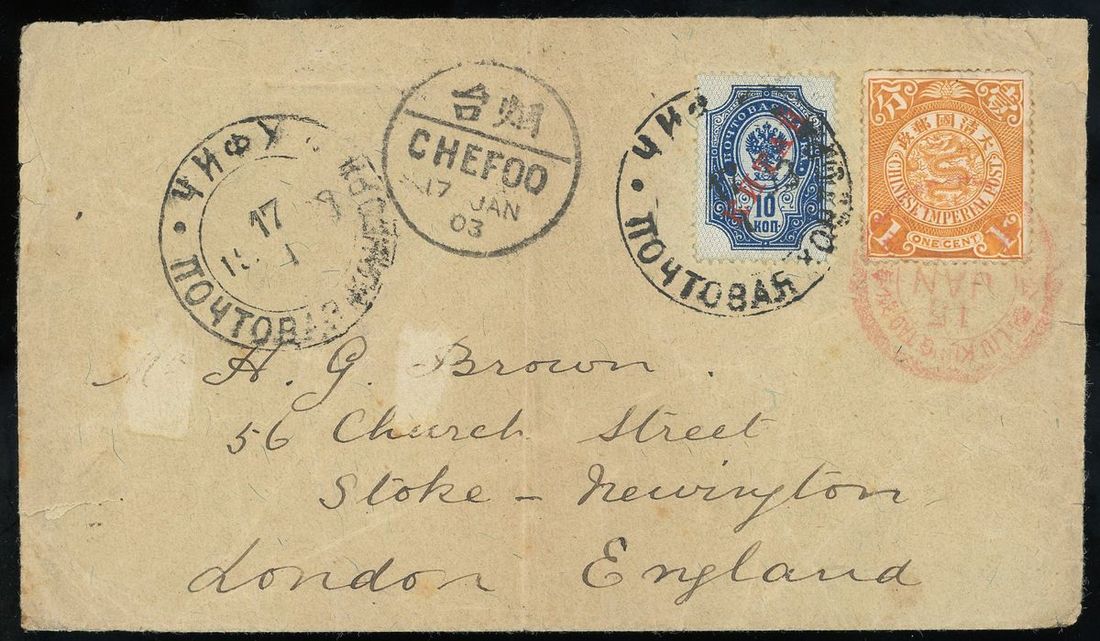 ЧИФУ
17
ПОЧТОВАЯ
台烟
CHEFOO
17 JAN
03
ЧИФУ
ПОЧТОВАЯ
ПОЧТОВАЯ
КИТАЙ
10
КОП.
分 壹
政郵國清大
CHINESE IMPERIAL POST
1 ONE CENT 1
LIU KUNG TAO
15
JAN
H. G. Brown.
56 Church Street
Stoke - Newington
London England